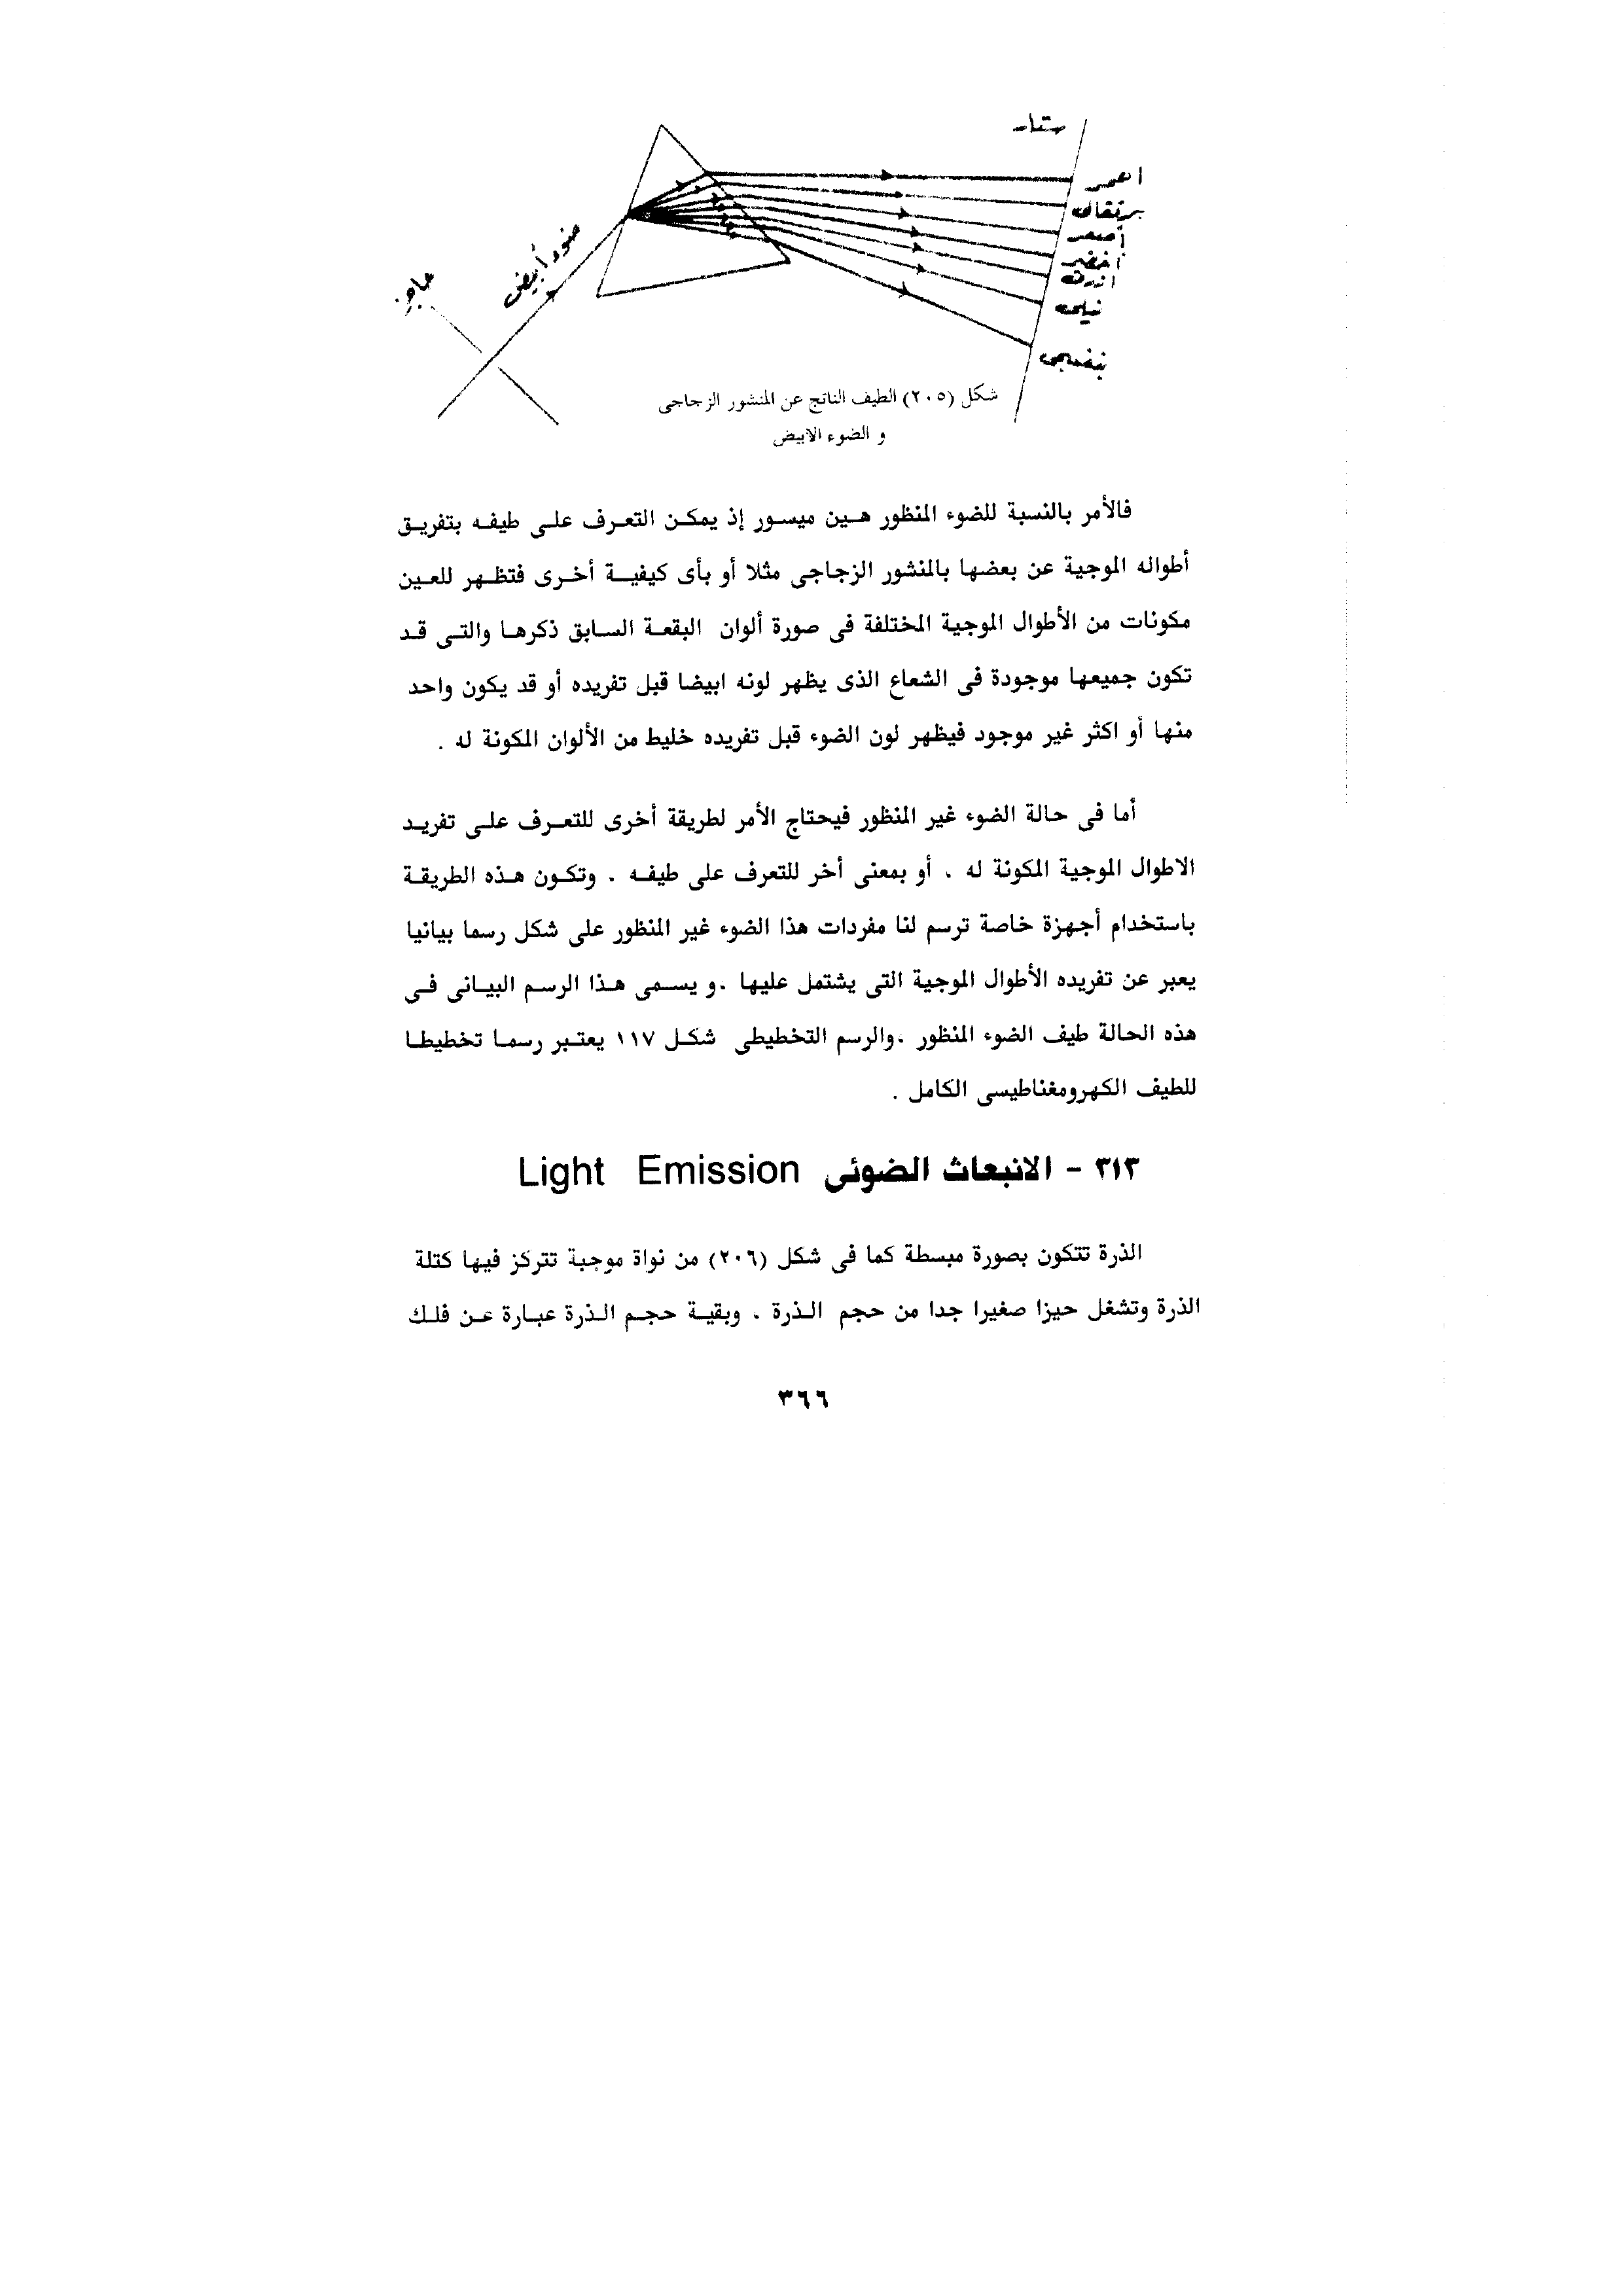 ستار
احمر
برتقالى
أصفر
اخضر
ازرق
نيلى
بنفسجى
ضوء أبيض
حاجز
شكل (٢٠٥) الطيف الناتج عن المنشور الزجاجى
و الضوء الابيض
فالأمر بالنسبة للضوء المنظور هين ميسور إذ يمكن التعرف على طيفه بتفريق
أطواله الموجية عن بعضها بالمنشور الزجاجى مثلا أو بأى كيفية أخرى فتظهر للعين
مكونات من الأطوال الموجية المختلفة فى صورة ألوان البقعة السابق ذكرها والتى قد
تكون جميعها موجودة فى الشعاع الذى يظهر لونه ابيضا قبل تفريده أو قد يكون واحد
منها أو اكثر غير موجود فيظهر لون الضوء قبل تفريده خليط من الألوان المكونة له .
أما فى حالة الضوء غير المنظور فيحتاج الأمر لطريقة أخرى للتعرف على تفريد
الاطوال الموجية المكونة له . أو بمعنى أخر للتعرف على طيفه . وتكون هذه الطريقة
باستخدام أجهزة خاصة ترسم لنا مفردات هذا الضوء غير المنظور على شكل رسما بيانيا
يعبر عن تفريده الأطوال الموجية التى يشتمل عليها .و يسمى هذا الرسم البيانى فى
هذه الحالة طيف الضوء المنظور .والرسم التخطيطى شكل ١١٧ يعتبر رسما تخطيطا
للطيف الكهرومغناطيسى الكامل .
٣١٣ - الانبعاث الضوئى Light Emission
الذرة تتكون بصورة مبسطة كما فى شكل (٢٠٦) من نواة موجبة تتركز فيها كتلة
الذرة وتشغل حيزا صغيرا جدا من حجم الذرة . وبقية حجم الذرة عبارة عن فلك
٣٦٦